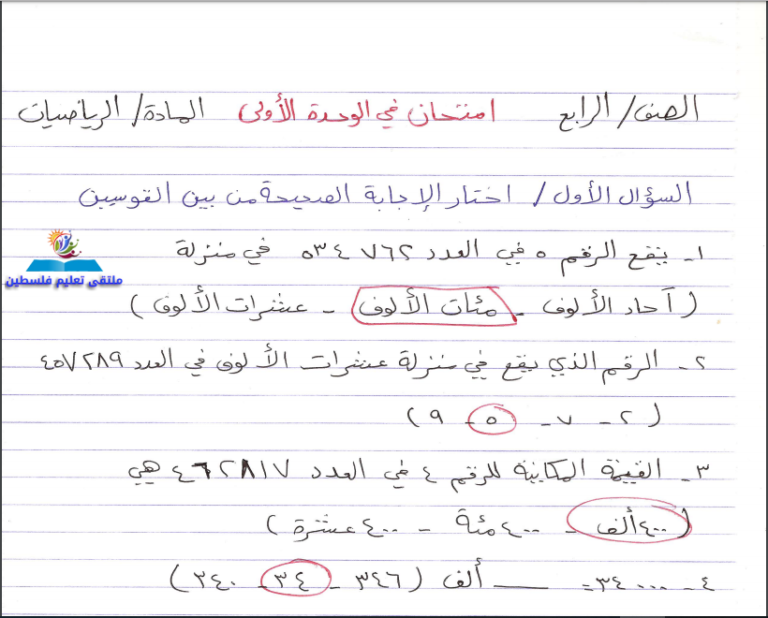 الصف/ الرابع امتحان في الوحدة الأولى المادة/ الرياضيات
السؤال الأول/ اختار الإجابة الصحيحة من بين القوسين
١- يقع الرقم ٥ في العدد ٥٣٤٧٦٢ في منزلة
(آحاد الألوف - مئات الألوف - عشرات الألوف)
ملتقى تعليم فلسطين
٢- الرقم الذي يقع في منزلة عشرات الألوف في العدد ٤٥٧٢٨٩
(٢ - ٧ - ٥ - ٩)
٣- القيمة المكانية للرقم ٤ في العدد ٤٦٢٨١٧ هي
(٤٠٠ ألف - ٤٠٠ مئة - ٤٠٠ عشرة)
٤- ٣٤٠٠٠ = ــــــ ألف (٣٤٦ - ٣٤ - ٣٤٠)